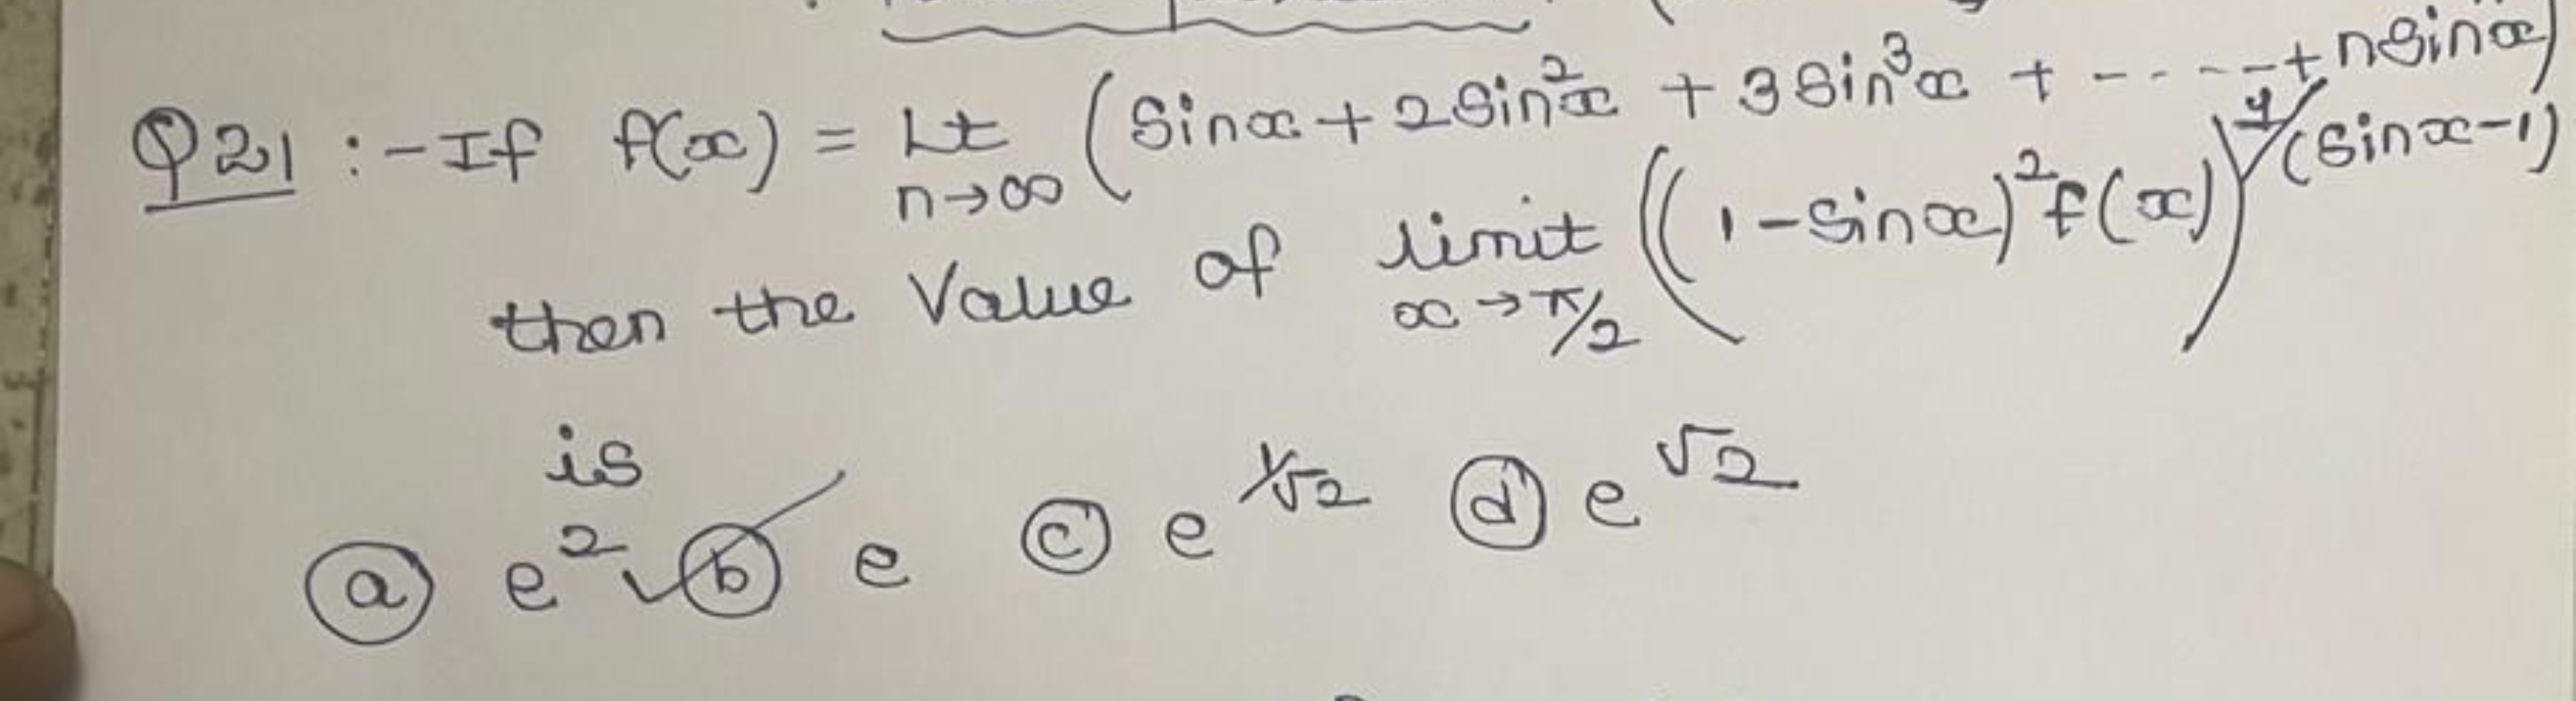 Q21 :- If f(x) = Lt n→∞ (Sinx + 2Sin²x + 3Sin³x + ----- + nSinⁿx)
then the Value of limit x→π/2 ((1-Sinx)²f(x))^1/(Sinx-1)
is
ⓐ e² ✓ⓑ e ⓒ e^1/√2 ⓓ e^√2